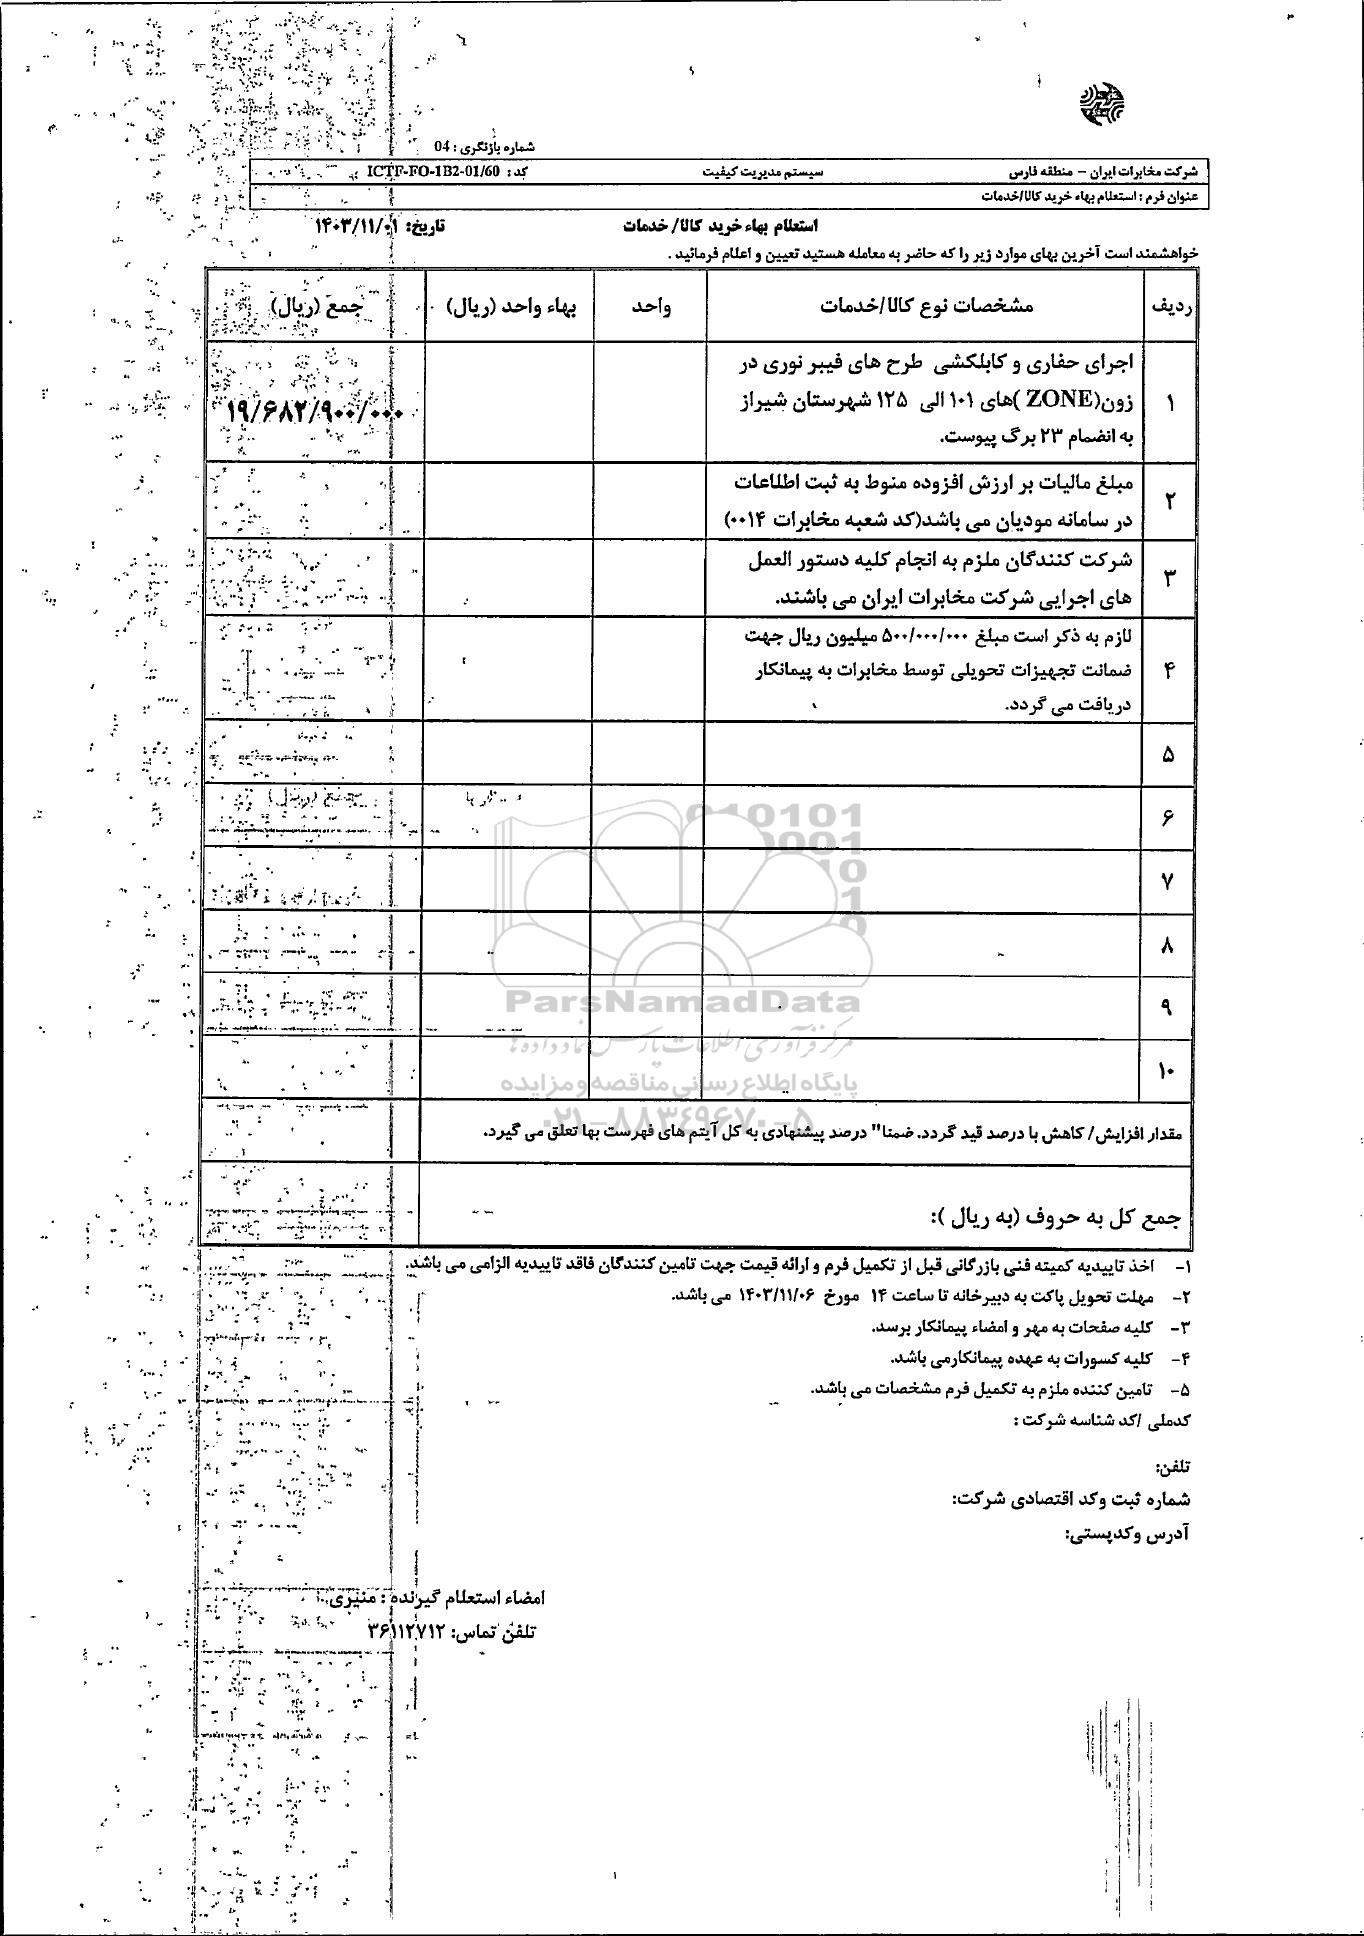 شماره بازنگری : 04
شرکت مخابرات ایران – منطقه فارس سیستم مدیریت کیفیت کد : ICTF-FO-1B2-01/60
عنوان فرم : استعلام بهاء خرید کالا/خدمات
استعلام بهاء خرید کالا/ خدمات تاریخ: ۱۴۰۳/۱۱/۰۱
خواهشمند است آخرین بهای موارد زیر را که حاضر به معامله هستید تعیین و اعلام فرمائید .
ردیف مشخصات نوع کالا/خدمات واحد بهاء واحد (ریال) جمع (ریال)
اجرای حفاری و کابلکشی طرح های فیبر نوری در
۱ زون(ZONE )های ۱۰۱ الی ۱۲۵ شهرستان شیراز ۱۹/۶۸۲/۹۰۰/۰۰۰
به انضمام ۲۳ برگ پیوست.
۲ مبلغ مالیات بر ارزش افزوده منوط به ثبت اطلاعات
در سامانه مودیان می باشد(کد شعبه مخابرات ۰۰۱۴)
۳ شرکت کنندگان ملزم به انجام کلیه دستور العمل
های اجرایی شرکت مخابرات ایران می باشند.
لازم به ذکر است مبلغ ۵۰۰/۰۰۰/۰۰۰ میلیون ریال جهت
۴ ضمانت تجهیزات تحویلی توسط مخابرات به پیمانکار
دریافت می گردد.
۵
۶
۷
۸
۹
۱۰
ParsNamadData
مرکز فرآوری اطلاعات پارس نماد داده ها
پایگاه اطلاع رسانی مناقصه و مزایده
۰۲۱-۸۸۳۴۹۶۷۰-۵
مقدار افزایش/ کاهش با درصد قید گردد. ضمنا" درصد پیشنهادی به کل آیتم های فهرست بها تعلق می گیرد.
جمع کل به حروف (به ریال ):
۱- اخذ تاییدیه کمیته فنی بازرگانی قبل از تکمیل فرم و ارائه قیمت جهت تامین کنندگان فاقد تاییدیه الزامی می باشد.
۲- مهلت تحویل پاکت به دبیرخانه تا ساعت ۱۴ مورخ ۱۴۰۳/۱۱/۰۶ می باشد.
۳- کلیه صفحات به مهر و امضاء پیمانکار برسد.
۴- کلیه کسورات به عهده پیمانکارمی باشد.
۵- تامین کننده ملزم به تکمیل فرم مشخصات می باشد.
کدملی /کد شناسه شرکت :
تلفن:
شماره ثبت وکد اقتصادی شرکت:
آدرس وکدپستی:
امضاء استعلام گیرنده : منیری
تلفن تماس: ۳۶۱۱۲۷۱۲